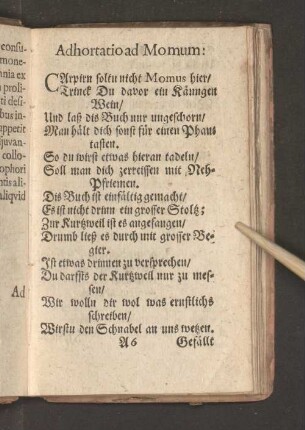 consu-
mone-
nia ex
proli-
ti desi-
bus in-
uppetit
juvan-
collo-
ophori
ntis ali-
aliqvid
Ad
Adhortatio ad Momum:
CArpirn soltu nicht Momus hier/
Trinck Du davor ein Känngen
Wein/
Und laß dis Buch nur ungeschorn/
Man hält dich sonst für einen Phan-
tasten.
So du wirst etwas hieran tadeln/
Soll man dich zerreissen mit Neh-
Pfriemen.
Dis Buch ist einfältig gemacht/
Es ist nicht drinn ein grosser Stoltz;
Zur Kurtzweil ist es angefangen/
Drumb ließ es durch mit grosser Be-
gier.
Ist etwas drinnen zu versprechen/
Du darffts der Kurtzweil nur zu mes-
sen/
Wir wolln dir wol was ernstlichs
schreiben/
Wirstu den Schnabel an uns wetzen.
A6 Gefällt